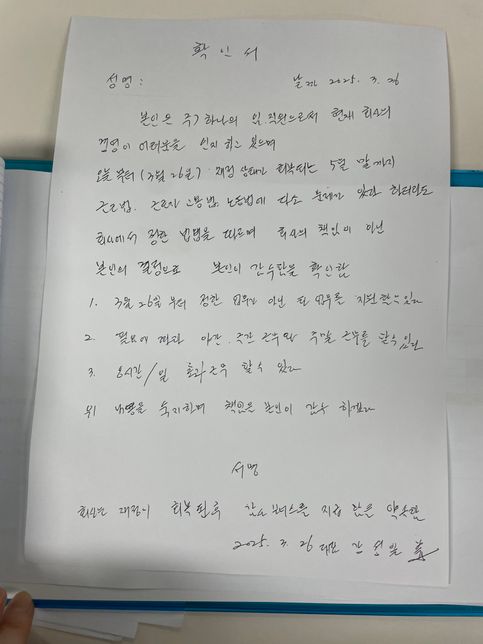 확인서
성명: 날짜 2025. 3. 26
본인은 주) 하나의 임.직원으로써 현재 회사의
경영이 어려움을 인지 하고 있으며
오늘 부터 (3월 26일) 재정 상태가 회복되는 5월 말까지
근로법. 근로자 고용법, 노동법에 다소 문제가 있다 하더라도
회사에서 정한 방법을 따르며 회사의 책임이 아닌
본인의 결정으로 본인이 감수함을 확인함
1. 3월 26일 부터 정한 업무가 아닌 타 업무를 지원할수 있다
2. 필요에 따라 야간. 주간 근무와 주말 근무를 할수 있다
3. 8시간/일 초과근무 할수 있다
위 내용을 숙지하며 책임은 본인이 감수 하겠다
서명
회사는 재정이 회복된후 감사 보너스를 지급 함을 약속함
2025. 3. 26 대표 강성일